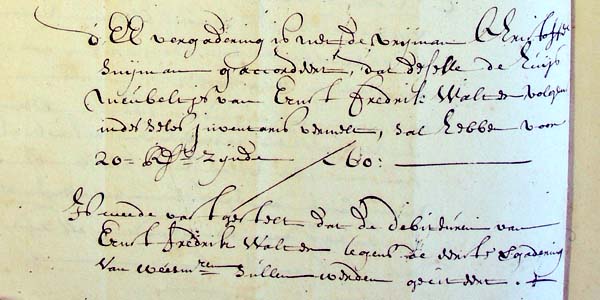 d' E E vergadering is met de vrijman Christoffel
Snijman g'accordeert, dat deselve de huijs
meubeltjs van Ernst Fredrik Walter volgens
in des selvs inventaris vermelt, sal hebben voor
20= Rds zijnde ƒ 60:
Is mede vast gestelt dat de debiteuren van
Ernst Fredrik Walter tegens de eerste vergadering
van weesmren sullen werden geciteert.